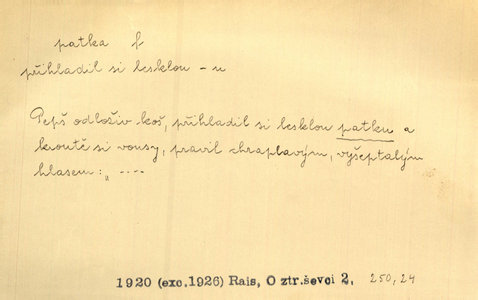 patka f
přihladil si lesklou -u
Pepš odloživ koš, přihladil si lesklou patku a
kroutě si vousy, pravil chraplavým, vyšeptalým
hlasem: „ ....
1920 (exc.1926) Rais, O ztr.ševci 2, 250,24